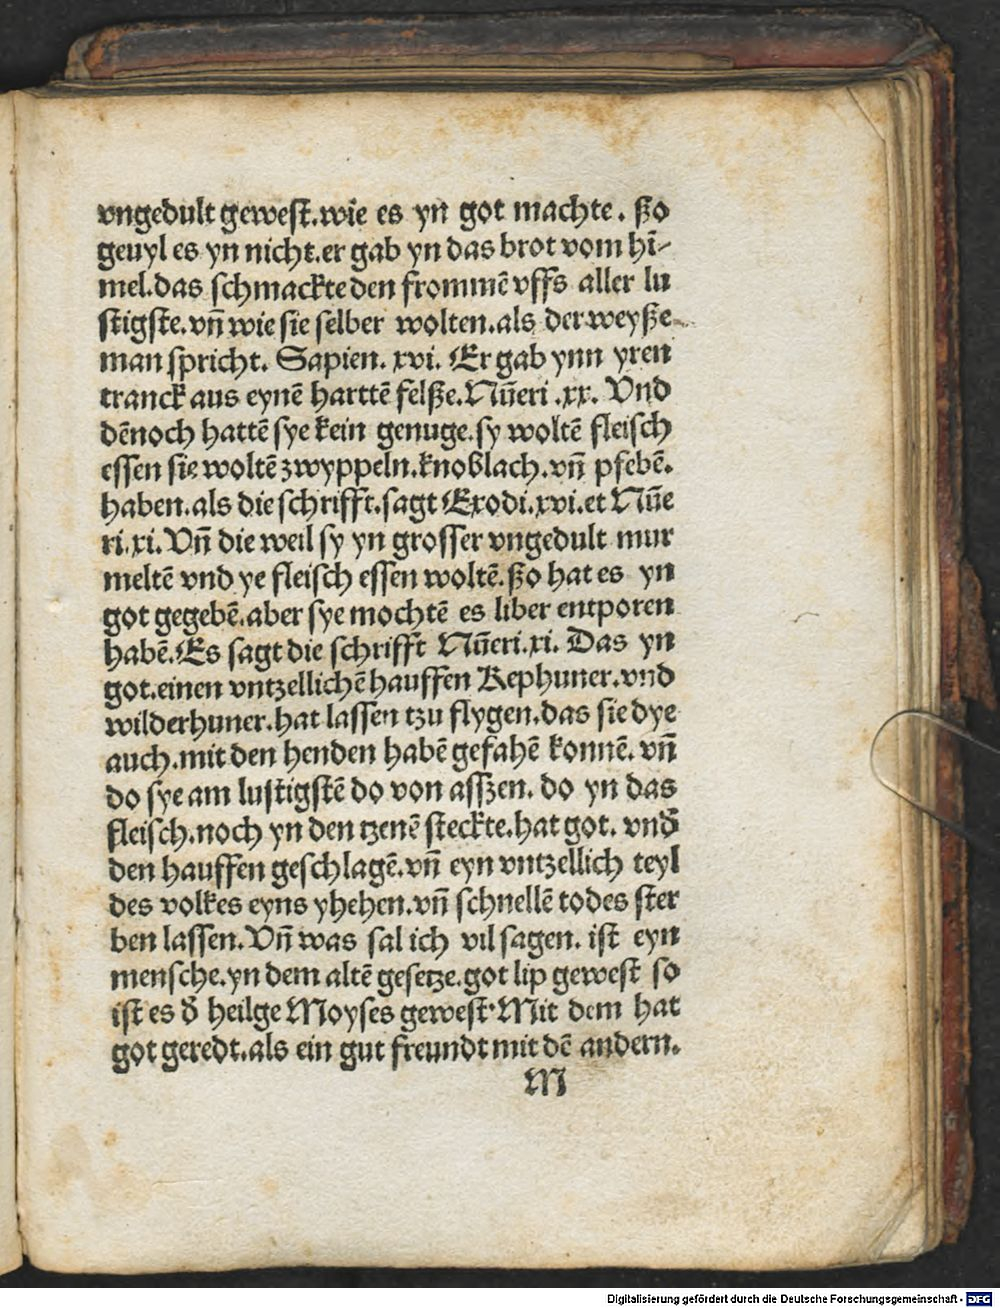 vngedult gewest.wie es yn got machte. ßo
geuyl es yn nicht.er gab yn das brot vom hī-
mel.das schmackte den frommē vffs aller lu
stigste.vn̄ wie sie selber wolten.als der weyße
man spricht. Sapien. xvi. Er gab ynn yren
tranck aus eynē harttē felße.Nūeri .xx. Vnd
dēnoch hattē sye kein genuge.sy woltē fleisch
essen sie woltē zwyppeln.knoßlach.vn̄ pfebē.
haben.als die schrifft.sagt Exodi.xvi.et Nūe
ri.xi. Vn̄ die weil sy yn grosser vngedult mur
meltē vnd ye fleisch essen woltē.ßo hat es yn
got gegebē.aber sye mochtē es liber entporen
habē.Es sagt die schrifft Nūeri.xi. Das yn
got.einen vntzellichē hauffen Rephuner.vnd
wilderhuner.hat lassen tzu flygen.das sie dye
auch.mit den henden habē gefahē konnē. vn̄
do sye am lustigstē do von asszen. do yn das
fleisch.noch yn den tzenē steckte.hat got. vnd̄
den hauffen geschlagē.vn̄ eyn vntzellich teyl
des volkes eyns yhehen.vn̄ schnellē todes ster
ben lassen.Vn̄ was sal ich vil sagen. ist eyn
mensche.yn dem altē gesetze.got lip gewest so
ist es d̄ heilge Moyses gewest.Mit dem hat
got geredt.als ein gut freundt mit dē andern.
M
Digitalisierung gefördert durch die Deutsche Forschungsgemeinschaft - DFG